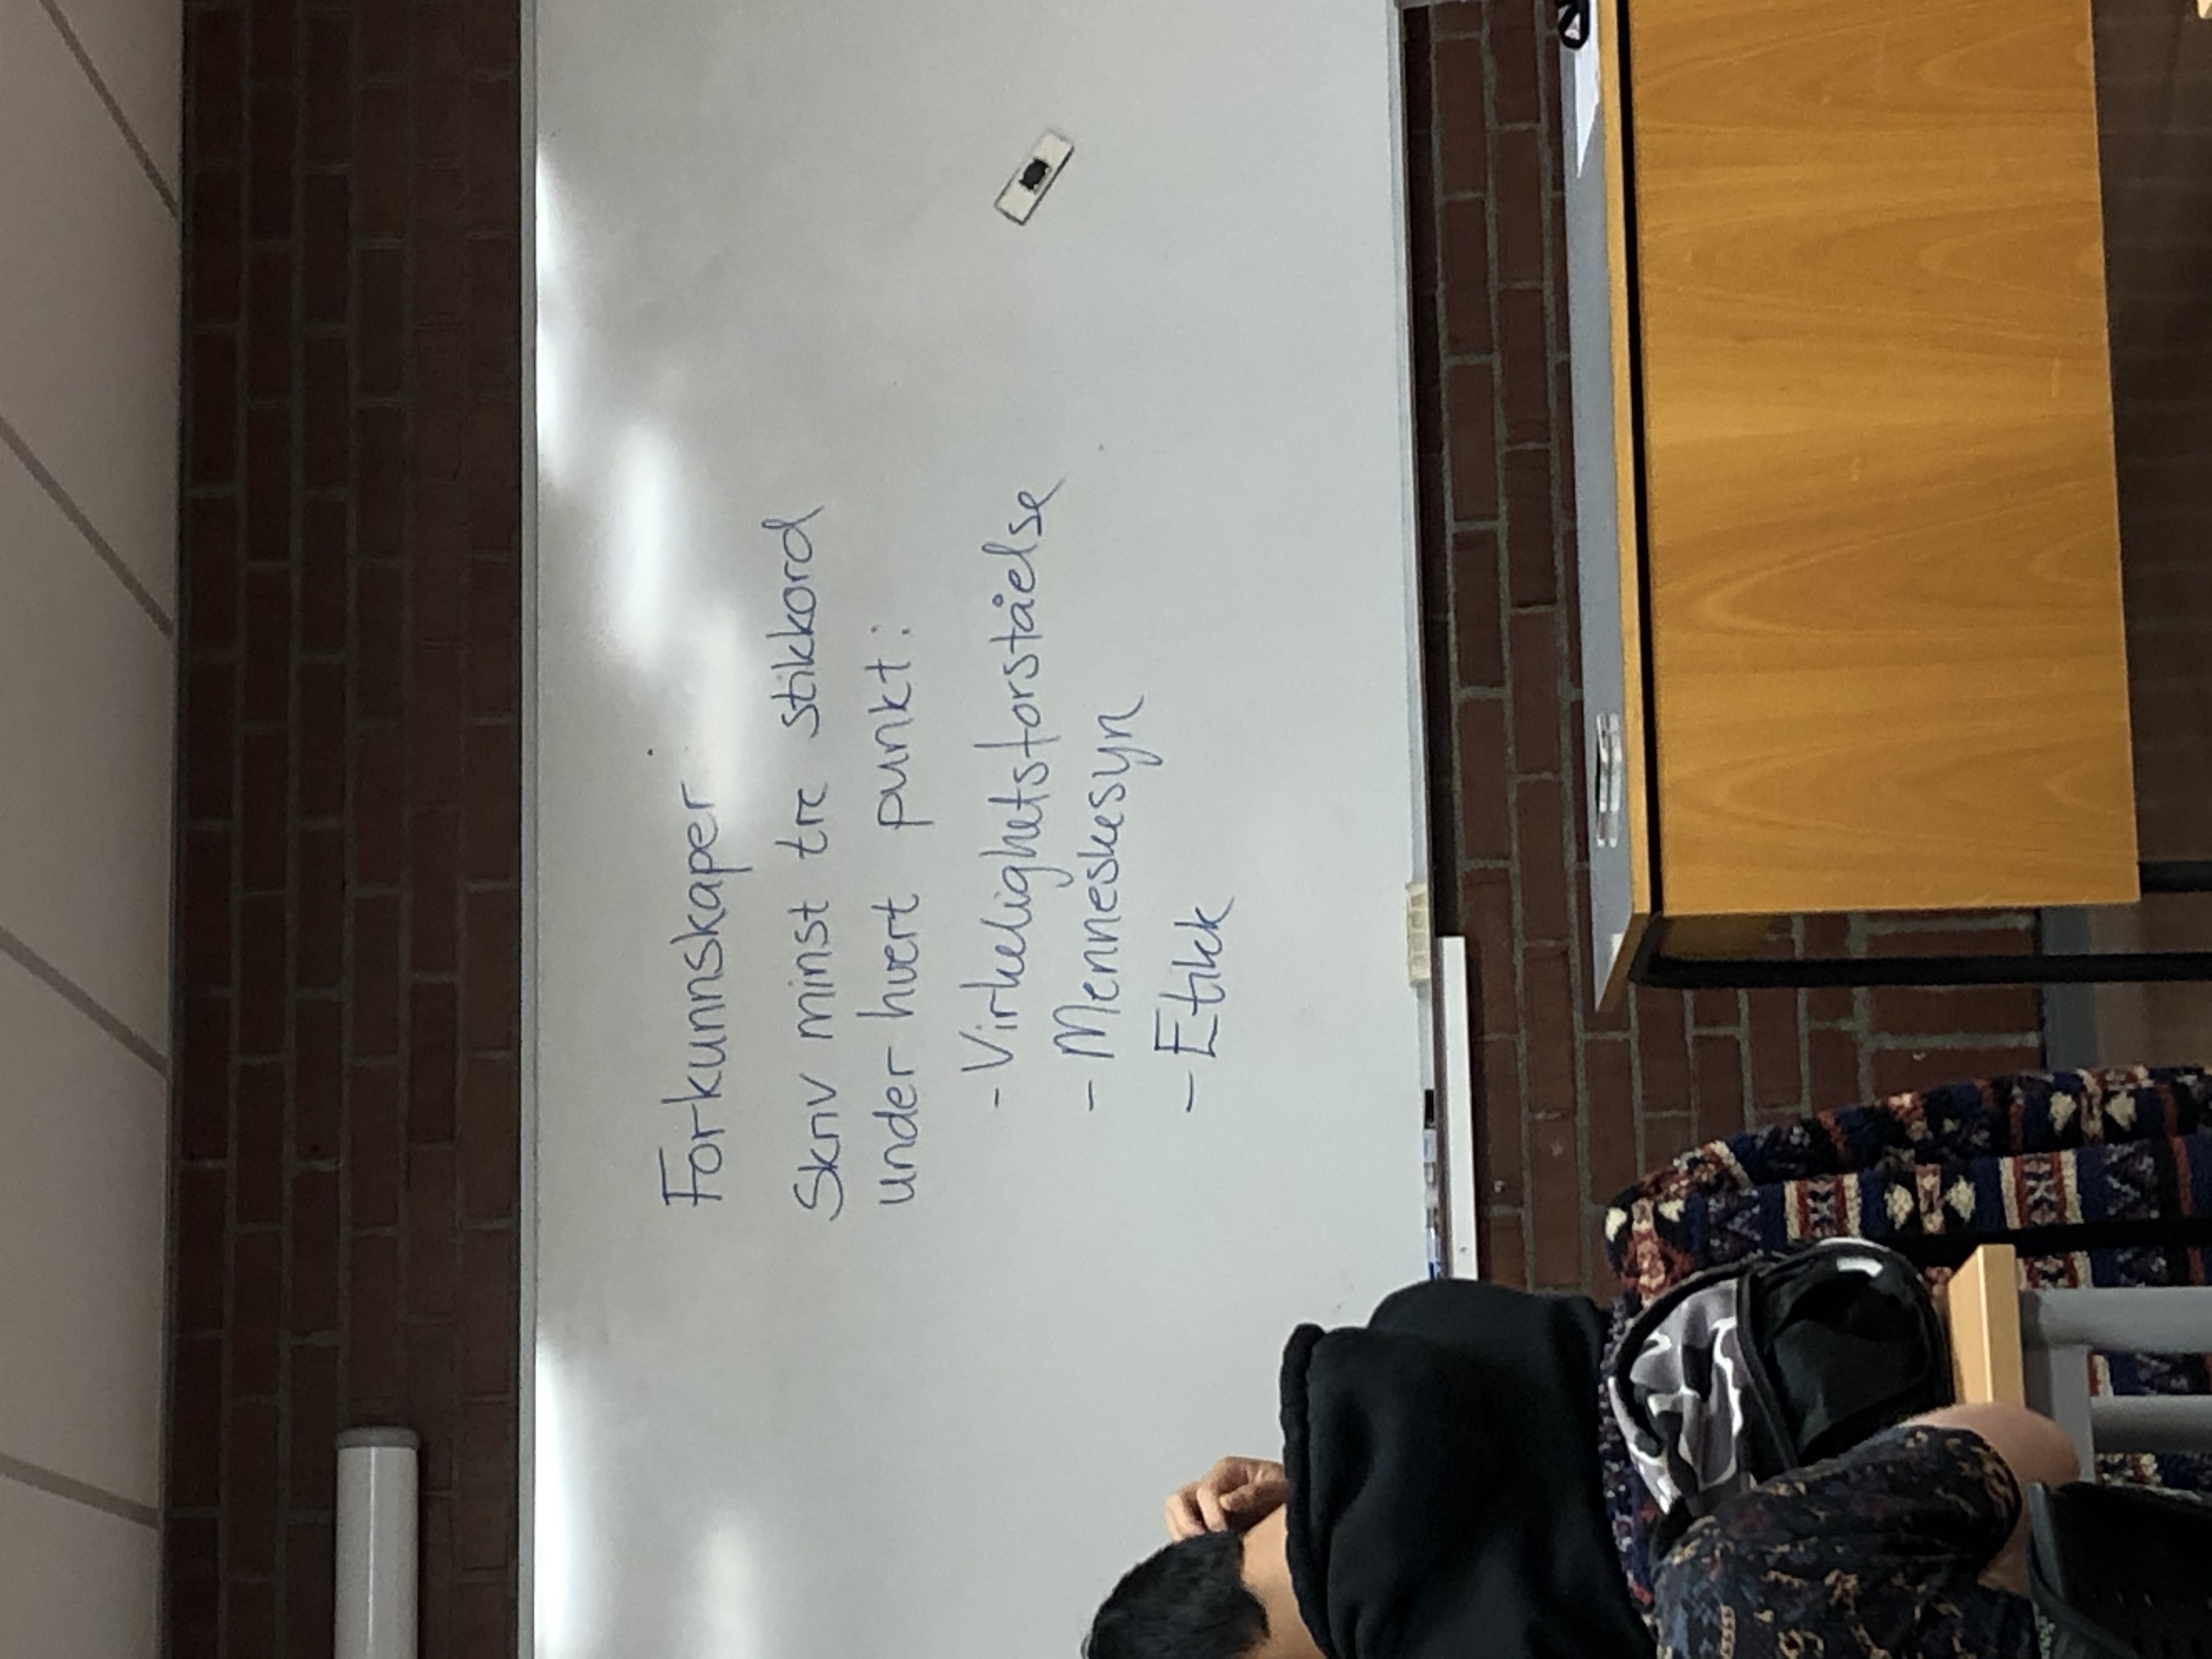 Forkunnskaper
Skriv minst tre stikkord
under hvert punkt:
- Virkelighetsforståelse
- Menneskesyn
- Etikk